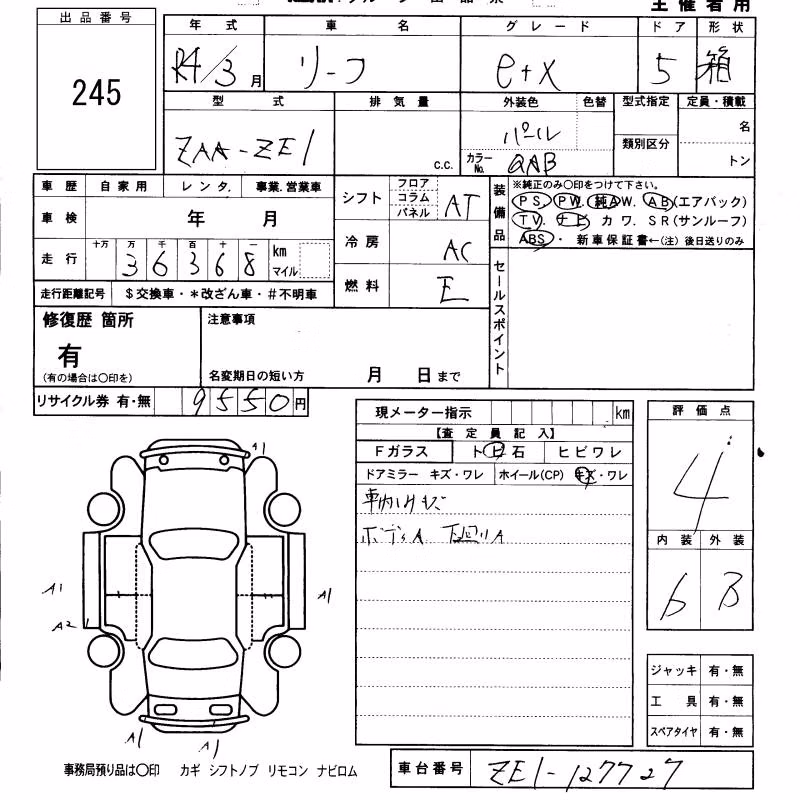 主催者用
出品番号
245
年式 車名 グレード ドア 形状
R4/3月 リーフ e+X 5 箱
型式 排気量 外装色 色替 型式指定 定員・積載
ZAA-ZE1 c.c. パール 類別区分 名
カラーNo. QAB トン
車歴 自家用 レンタ. 事業.営業車
車検 年 月
走行 十万 万 千 百 十 一 km マイル
3 6 3 6 8
走行距離記号 $交換車・*改ざん車・#不明車
シフト フロア コラム パネル AT
冷房 AC
燃料 E
装備品 ※純正のみ○印をつけて下さい。
PS. PW. 純AW. AB(エアバック)
TV. ナビ カワ. SR(サンルーフ)
ABS・ 新車保証書←(注)後日送りのみ
セールスポイント
修復歴 箇所
有
(有の場合は○印を)
注意事項
名変期日の短い方 月 日まで
リサイクル券 有・無 9550円
現メーター指示 km
【査定員記入】
Fガラス トビ石 ヒビワレ
ドアミラー キズ・ワレ ホイール(CP) キズ・ワレ
車内
ボディA 下廻りA
評価点
4
内装 外装
6 B
ジャッキ 有・無
工具 有・無
スペアタイヤ 有・無
A1
A1
A2
A1
A1
A1
事務局預り品は○印 カギ シフトノブ リモコン ナビロム
車台番号 ZE1-127727